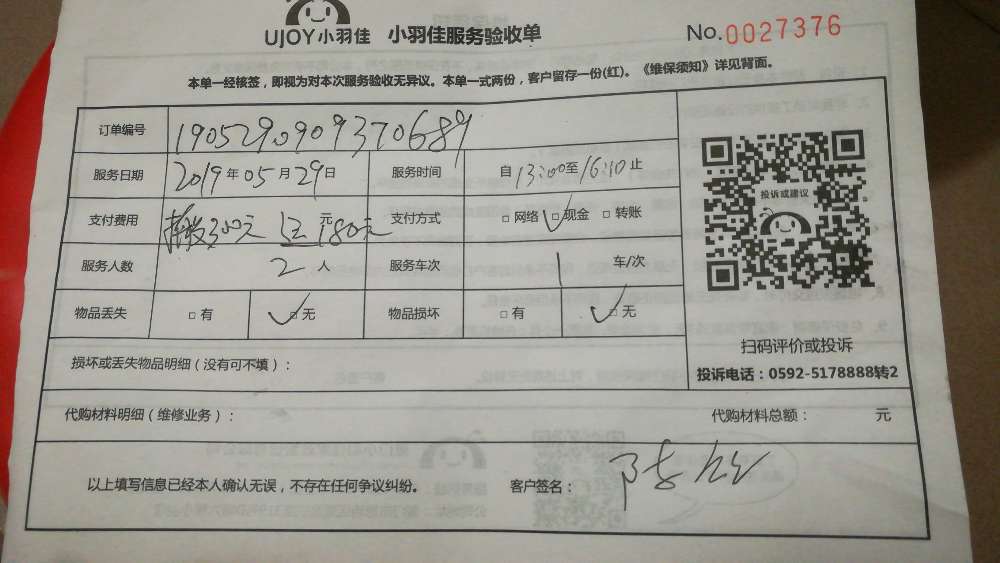 UJOY小羽佳 小羽佳服务验收单 No.0027376
本单一经核签，即视为对本次服务验收无异议。本单一式两份，客户留存一份(红)。《维保须知》详见背面。
订单编号 1905290909370689
服务日期 2019年05月29日 服务时间 自13:00至16:10止
投诉或建议
支付费用 300元 元 180元 支付方式 □网络 ☑现金 □转账
服务人数 2人 服务车次 1 车/次
物品丢失 □有 ☑无 物品损坏 □有 ☑无
扫码评价或投诉
损坏或丢失物品明细（没有可不填）：
投诉电话：0592-5178888转2
代购材料明细（维修业务）： 代购材料总额： 元
以上填写信息已经本人确认无误，不存在任何争议纠纷。 客户签名：